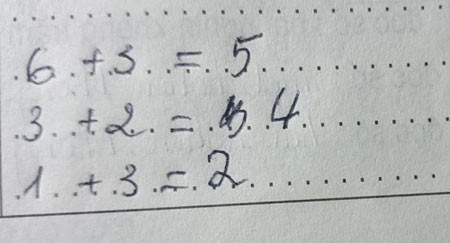 6 + 3 = 5
3 + 2 = 4
1 + 3 = 2